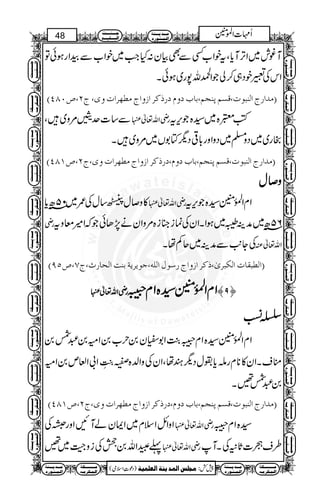 48
اُمہات المؤمنین
آغوش میں اتر آیا، یہ خواب کسی سے بھی بیان نہ کیا جب میں خواب سے بیدار ہوئی تو
اس کی تعبیر خود ہی کر لی جو الحمدللہ پوری ہوئی۔
(مدارج النبوت،قسم پنجم،باب دوم درذکر ازواج مطہرات وی،ج۲،ص۴۸۰)
کتب معتبرہ میں سیدہ جویریہ رضی اللہ تعالیٰ عنہا سے سات حدیثیں مروی ہیں،
بخاری میں دو مسلم میں دو اور باقی دیگر کتابوں میں مروی ہیں۔
(مدارج النبوت،قسم پنجم،باب دوم،درذکر ازواج مطہرات وی،ج۲،ص۴۸۱)
وصال
ام المؤمنین سیدہ جویریہ رضی اللہ تعالیٰ عنہا کا وصال پینسٹھ سال کی عمر میں ۵۰ھ یا
۵۶ھ میں مدینہ طیبہ میں ہوا۔ ان کی نماز جنازہ مروان نے پڑھائی جو کہ امیر معاویہ رضی
اللہ تعالیٰ عنہ کی جانب سے مدینہ میں حاکم تھا۔
(الطبقات الکبریٰ،ذکر ازواج رسول اللہ،جویریۃ بنت الحارث،ج۷،ص۹۵)
﴿۹﴾ ام المؤمنین سیدہ ام حبیبہ رضی اللہ تعالیٰ عنہا
سلسلہ نسب
ام المؤمنین سیدہ ام حبیبہ بنت ابوسفیان بن حرب بن امیہ بن عبد شمس بن
مناف۔ ان کا نام رملہ یا بقول دیگر ہند تھا، ان کی والدہ صفیہ بنت ابی العاص بن امیہ
بن عبد شمس تھیں۔
(مدارج النبوت،قسم پنجم،باب دوم،درذکر ازواج مطہرات وی،ج۲،ص۴۸۱)
سیدہ ام حبیبہ رضی اللہ تعالیٰ عنہا اوائل اسلام میں ایمان لے آئیں اور حبشہ کی
طرف ہجرت ثانیہ کی۔ آپ رضی اللہ تعالیٰ عنہا پہلے عبید اللہ بن جحش کی زوجیت میں تھیں
پیش کش: مجلس المدینۃ العلمیۃ (دعوت اسلامی)